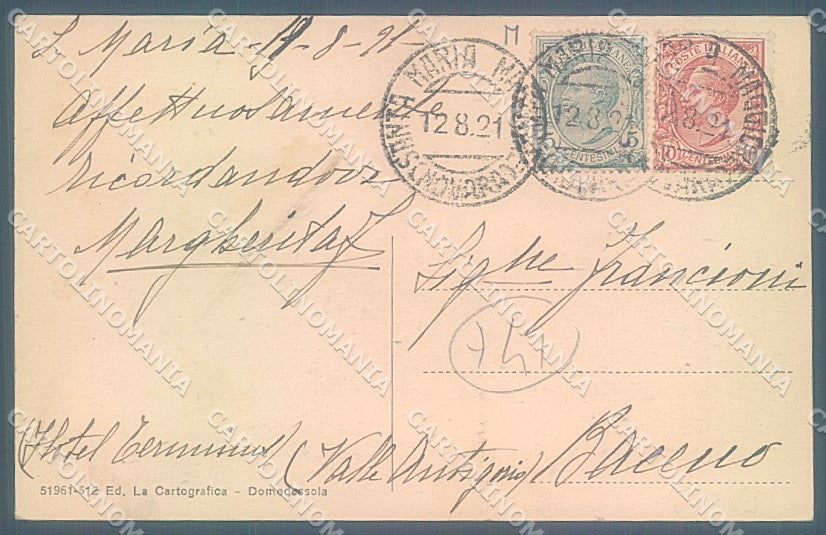 S. Maria 11-8-21-
Affettuosamente
ricordandovi
Margherita
(Hotel Terminus)
51961-512 Ed. La Cartografica - Domodossola
M
SANTA MARIA MAGGIORE
12.8.21
POSTE ITALIANE
5
CENTESIMI
12.8.21
POSTE ITALIANE
10
CENTESIMI
8.21
Sig.ne Francioni
(Valle Antigorio) Baceno
CARTOLINOMANIA